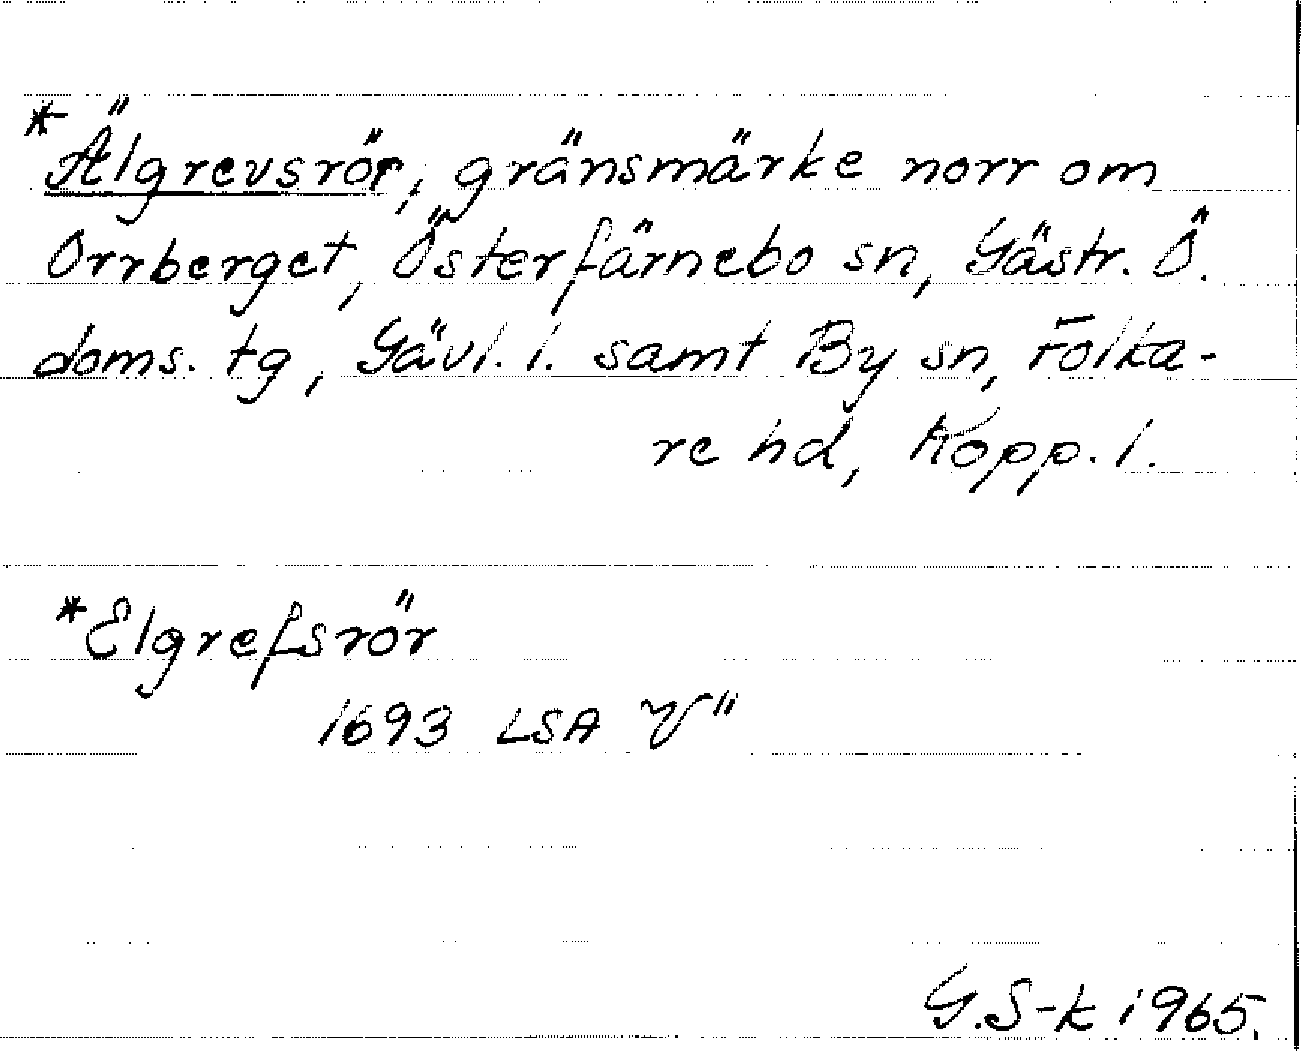 *Älgrevsrör, gränsmärke norr om
Orrberget, Österfärnebo sn, Gästr. Ö.
doms. tg, Gävl. l. samt By sn, Folka-
re hd, Kopp. l.
*Elgrefsrör
1693 LSA V"
G.S-k 1965.